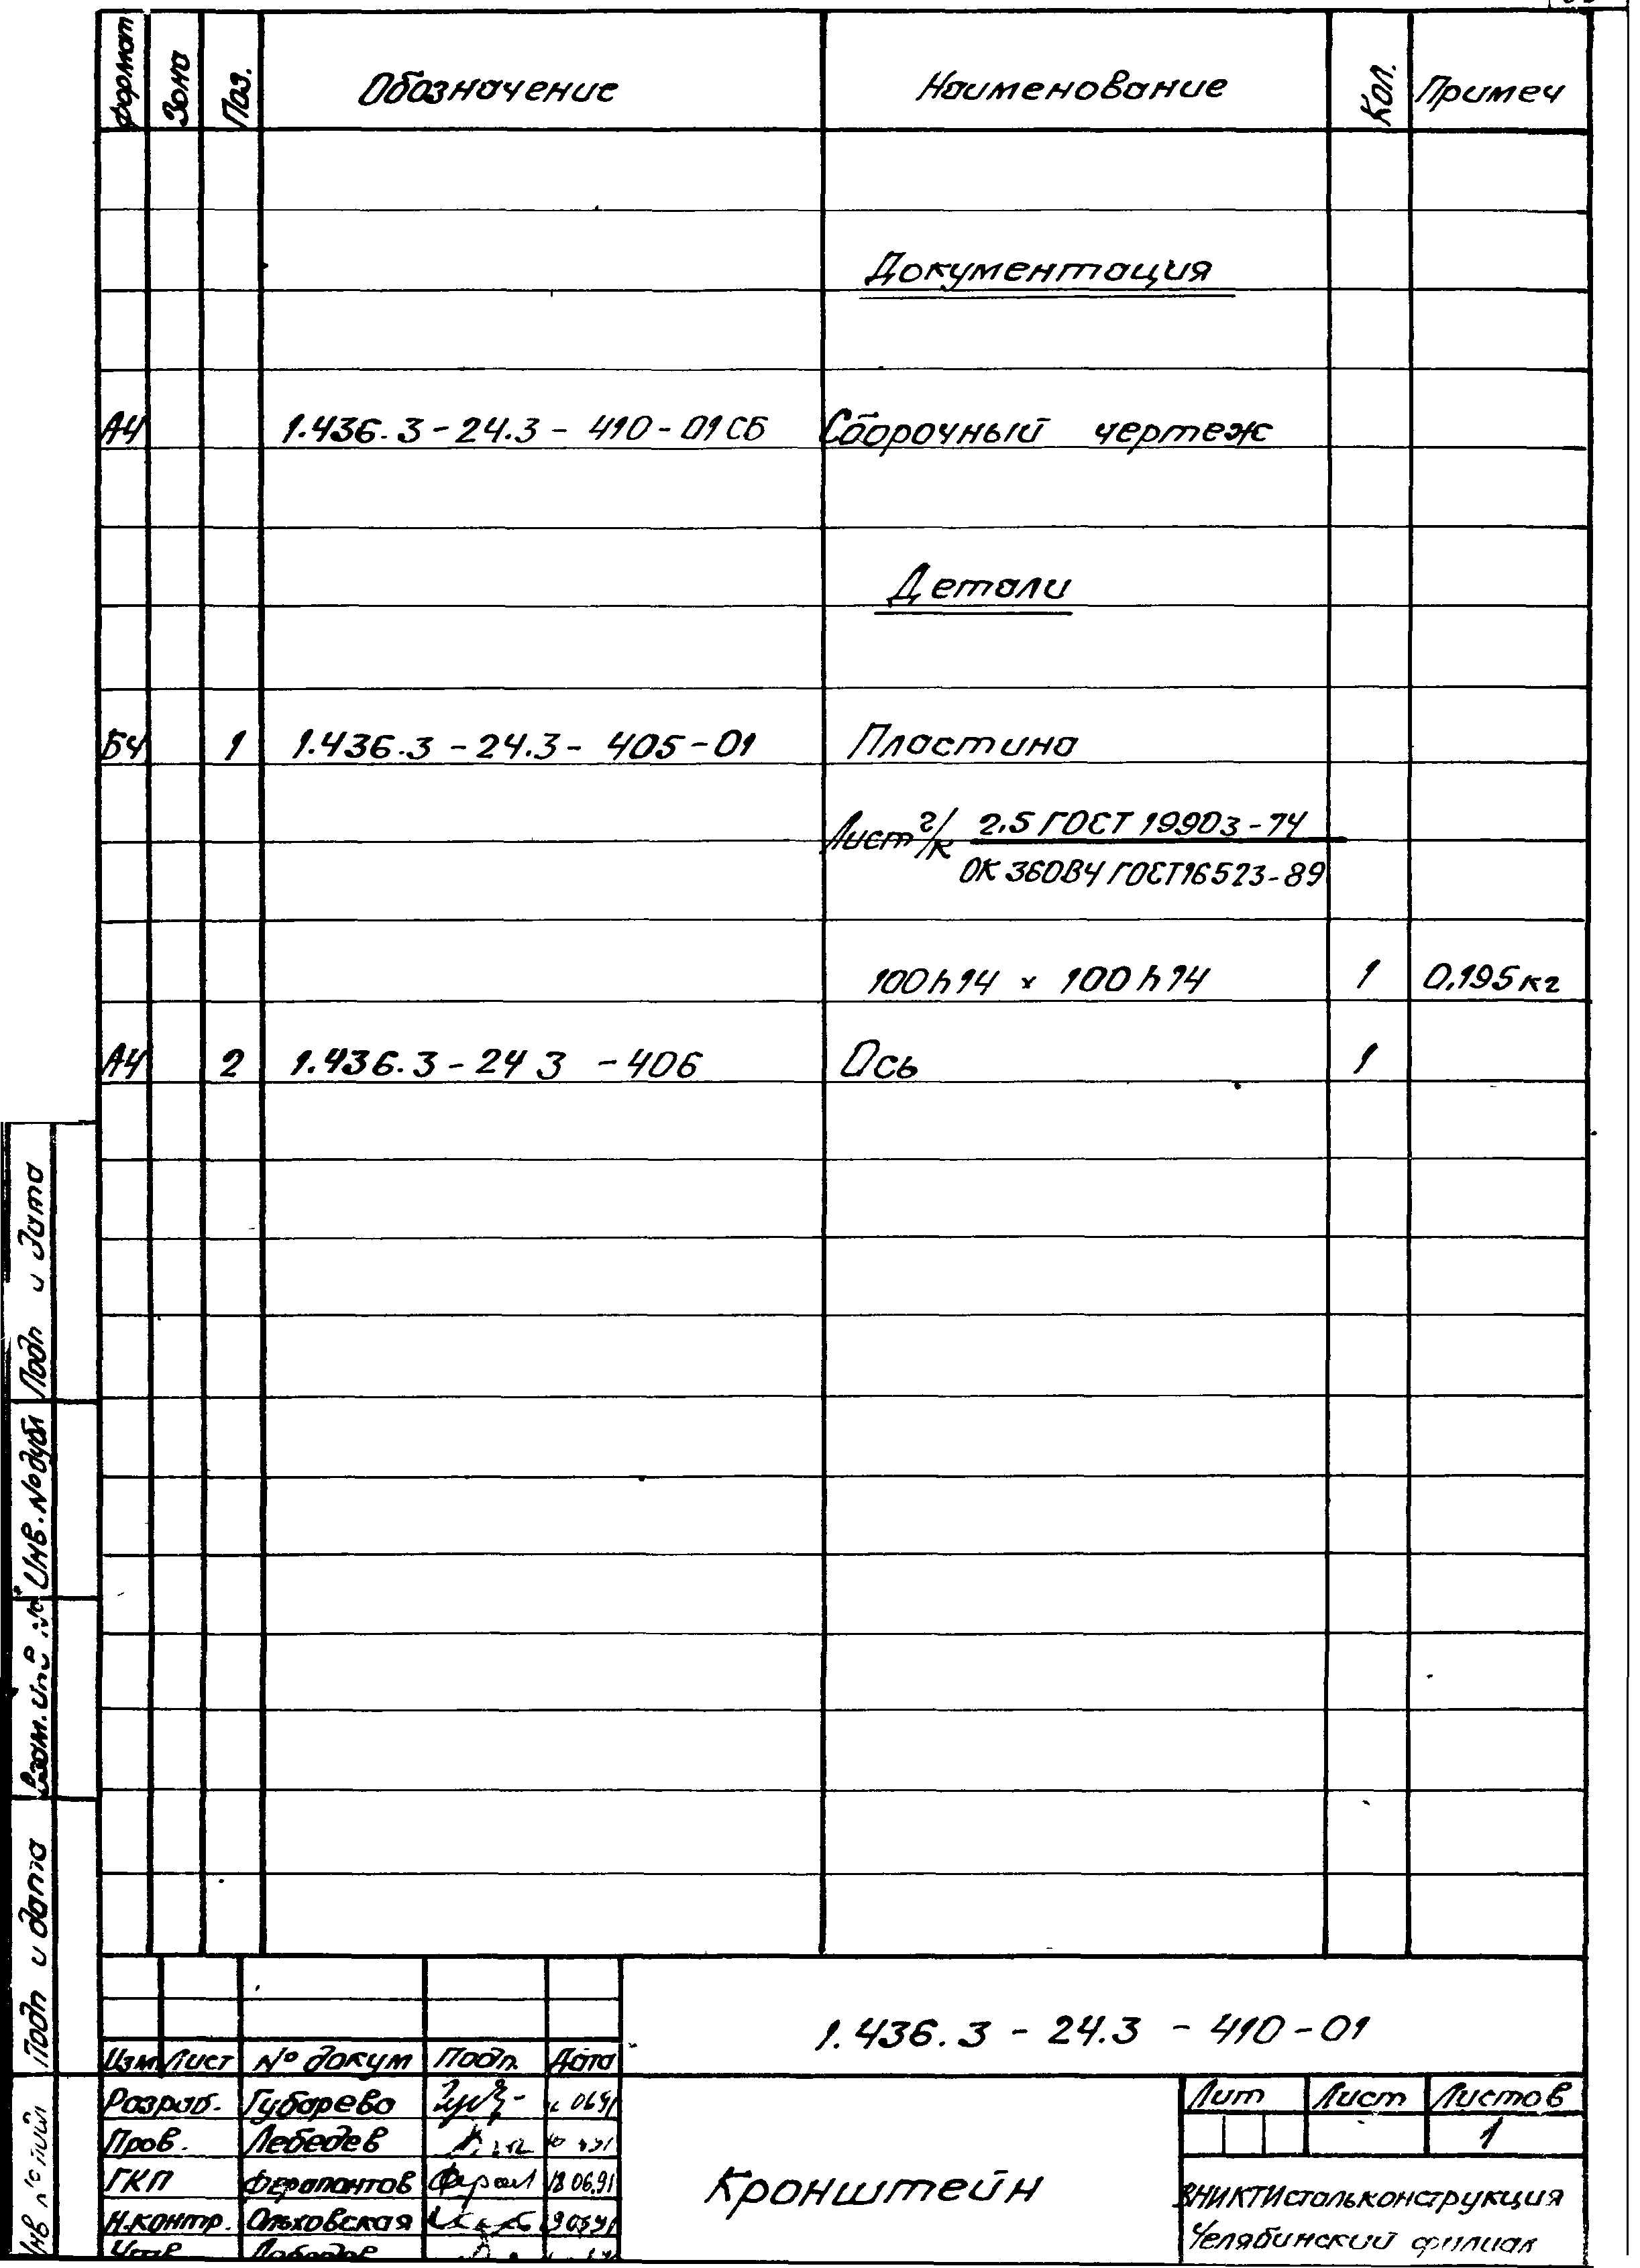 Формат Зона Поз. Обозначение Наименование Кол. Примеч
Документация
А4 1.436.3-24.3-410-01СБ Сборочный чертеж
Детали
БЧ 1 1.436.3-24.3-405-01 Пластина
Лист г/к 2.5 ГОСТ 19903-74
ОК 360В4 ГОСТ16523-89
100h14 × 100h14 1 0.195кг
А4 2 1.436.3-24 3 -406 Ось 1
Подп и дата
Инв. № дубл
Взам. инв №
Подп и дата
Инв
1.436.3-24.3-410-01
Изм Лист № докум Подп. Дата
Разраб. Губарева 06.91
Пров. Лебедев
ГКП Ферапонтов 18 06.91
Н.контр. Ольховская
Кронштейн
Лит Лист Листов
1
ВНИКТИстальконструкция
Челябинский филиал